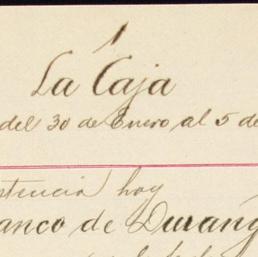 1
La Caja
del 30 de Enero al 5 de
stencia hoy
anco de Durang